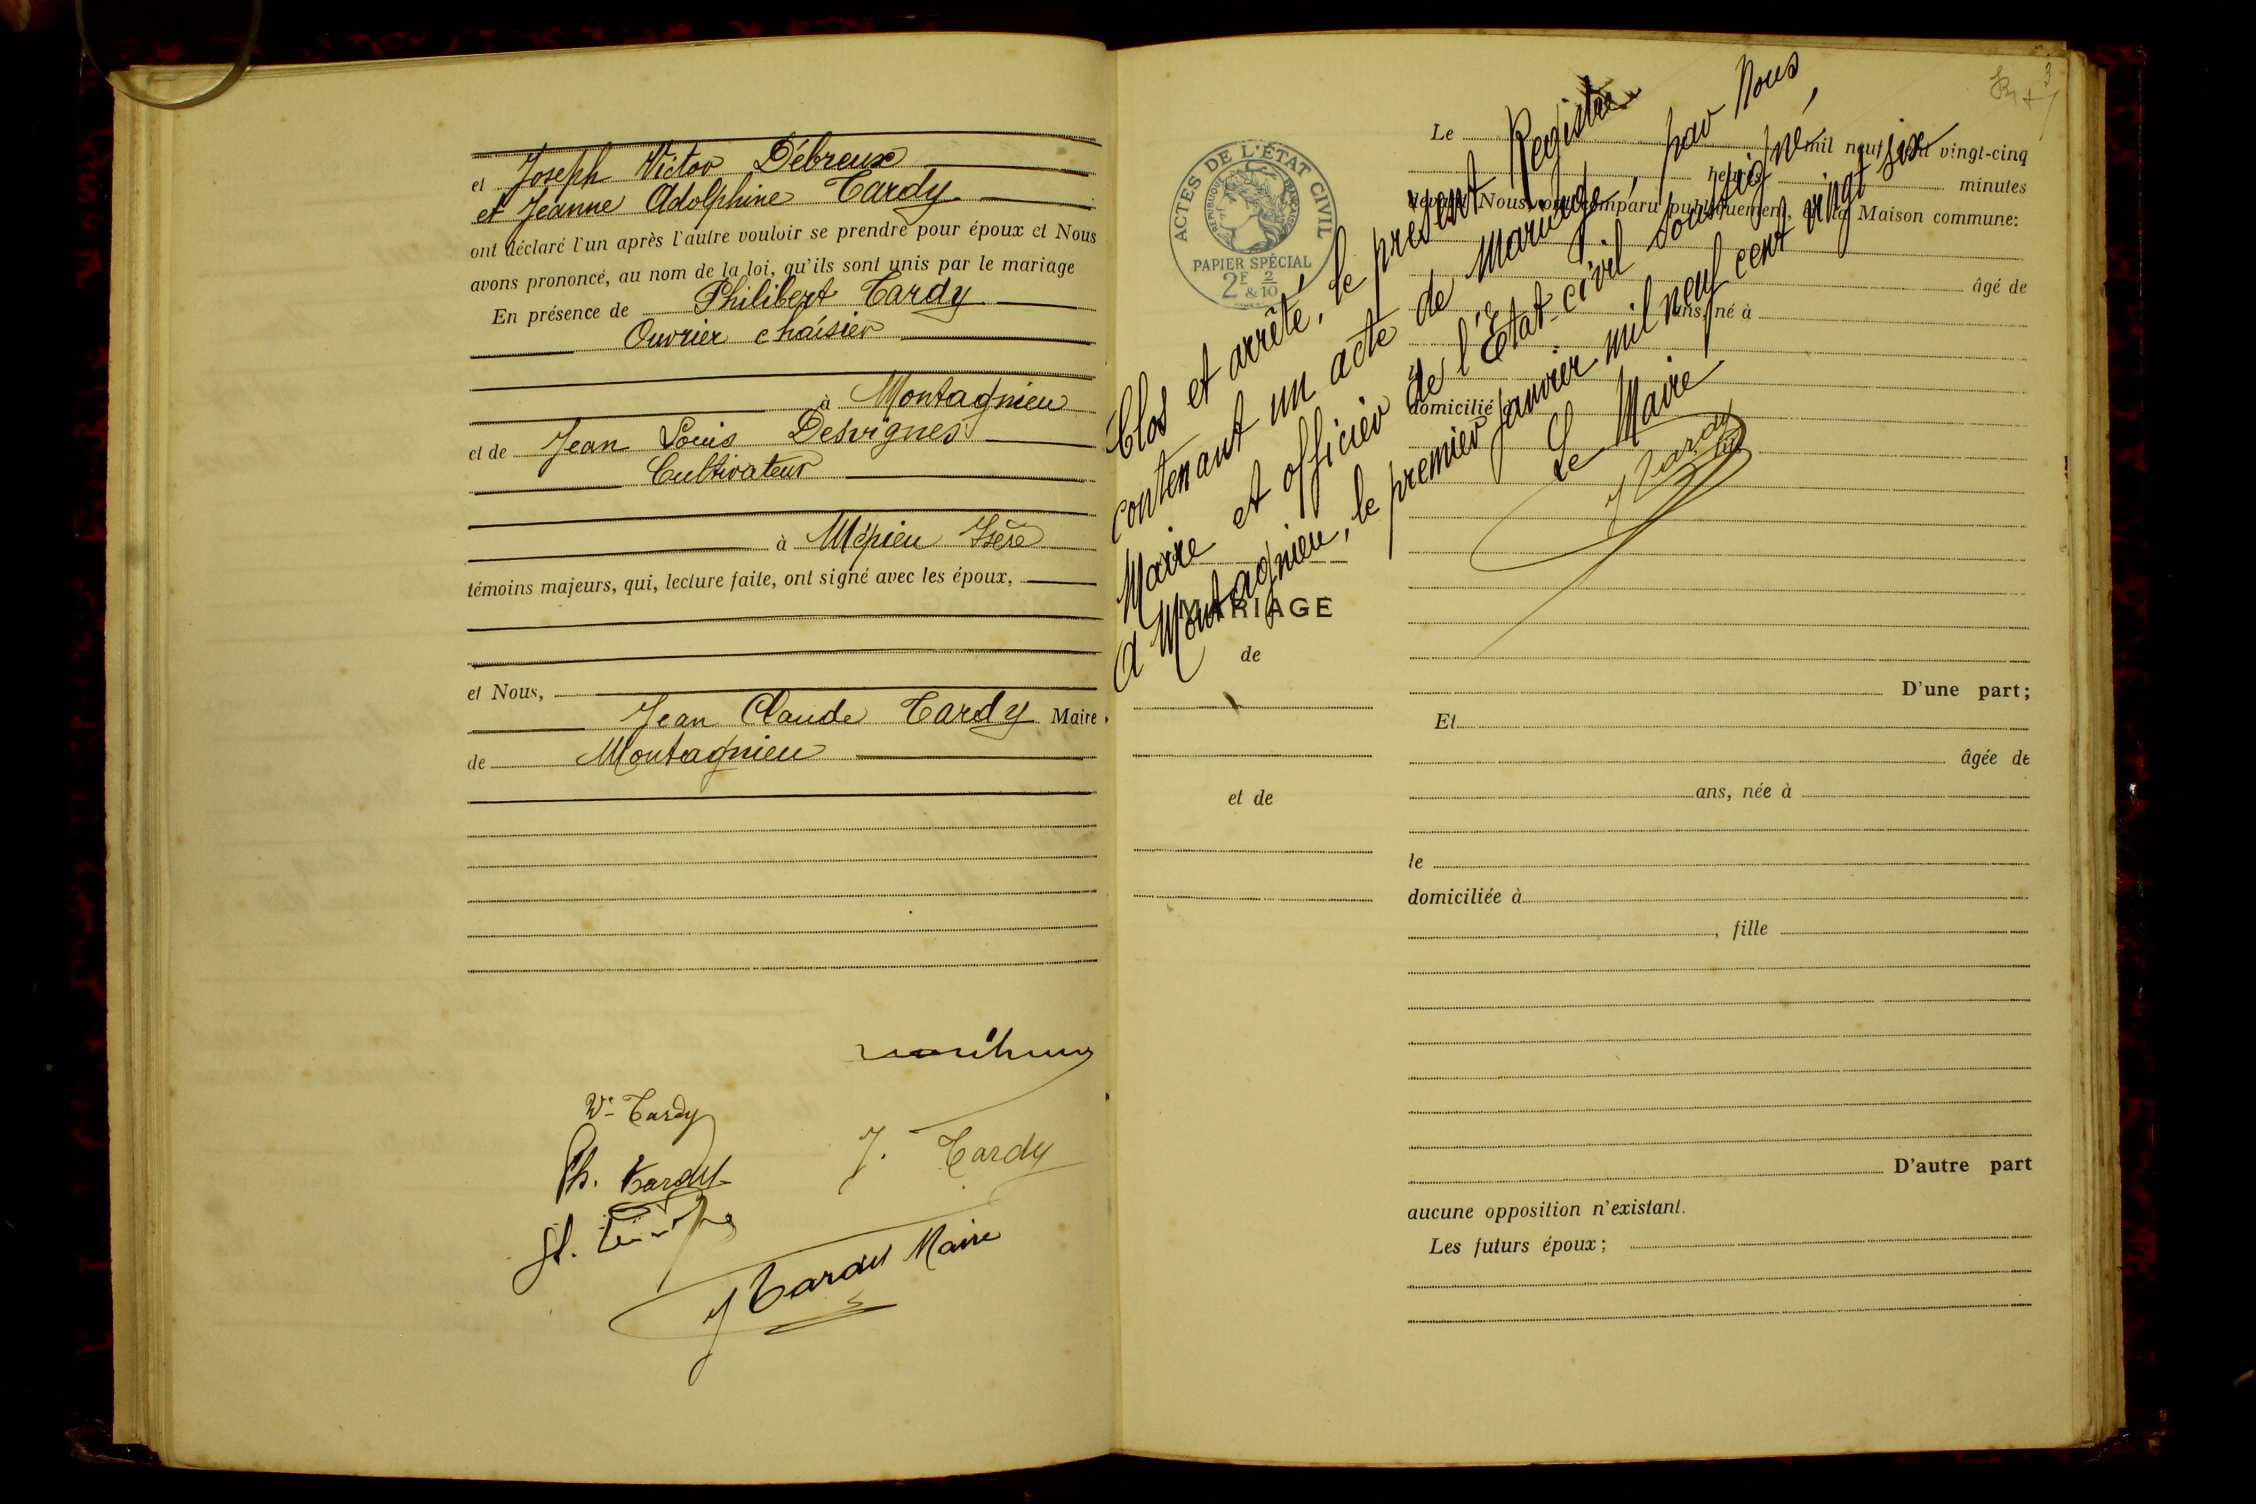 et Joseph Victor Débreux
et Jeanne Adolphine Tardy
ont déclaré l'un après l'autre vouloir se prendre pour époux et Nous
avons prononcé, au nom de la loi, qu'ils sont unis par le mariage
En présence de Philibert Tardy
Ouvrier chaisier
à Montagnieu
et de Jean Louis Desvignes
Cultivateur
à Mépieu Isère
témoins majeurs, qui, lecture faite, ont signé avec les époux,
et Nous,
Jean Claude Tardy Maire
de Montagnieu
Vve Tardy
Ph. Tardy
J. Tardy
J Tardy Maire
3
ACTES DE L'ÉTAT CIVIL
RÉPUBLIQUE FRANÇAISE
PAPIER SPÉCIAL
2F & 2/10
Clos et arrêté, le présent Registre
contenant un acte de Mariage, par Nous
Maire et officier de l'Etat-civil soussigné,
A Montagnieu, le premier janvier mil neuf cent vingt six
Le Maire
J Tardy
MARIAGE
de
et de
Le mil neuf cent vingt-cinq
heures minutes
devant Nous ont comparu publiquement, en la Maison commune:
âgé de
ans, né à
domicilié
D'une part;
Et
âgée de
ans, née à
le
domiciliée à
, fille
D'autre part
aucune opposition n'existant.
Les futurs époux;